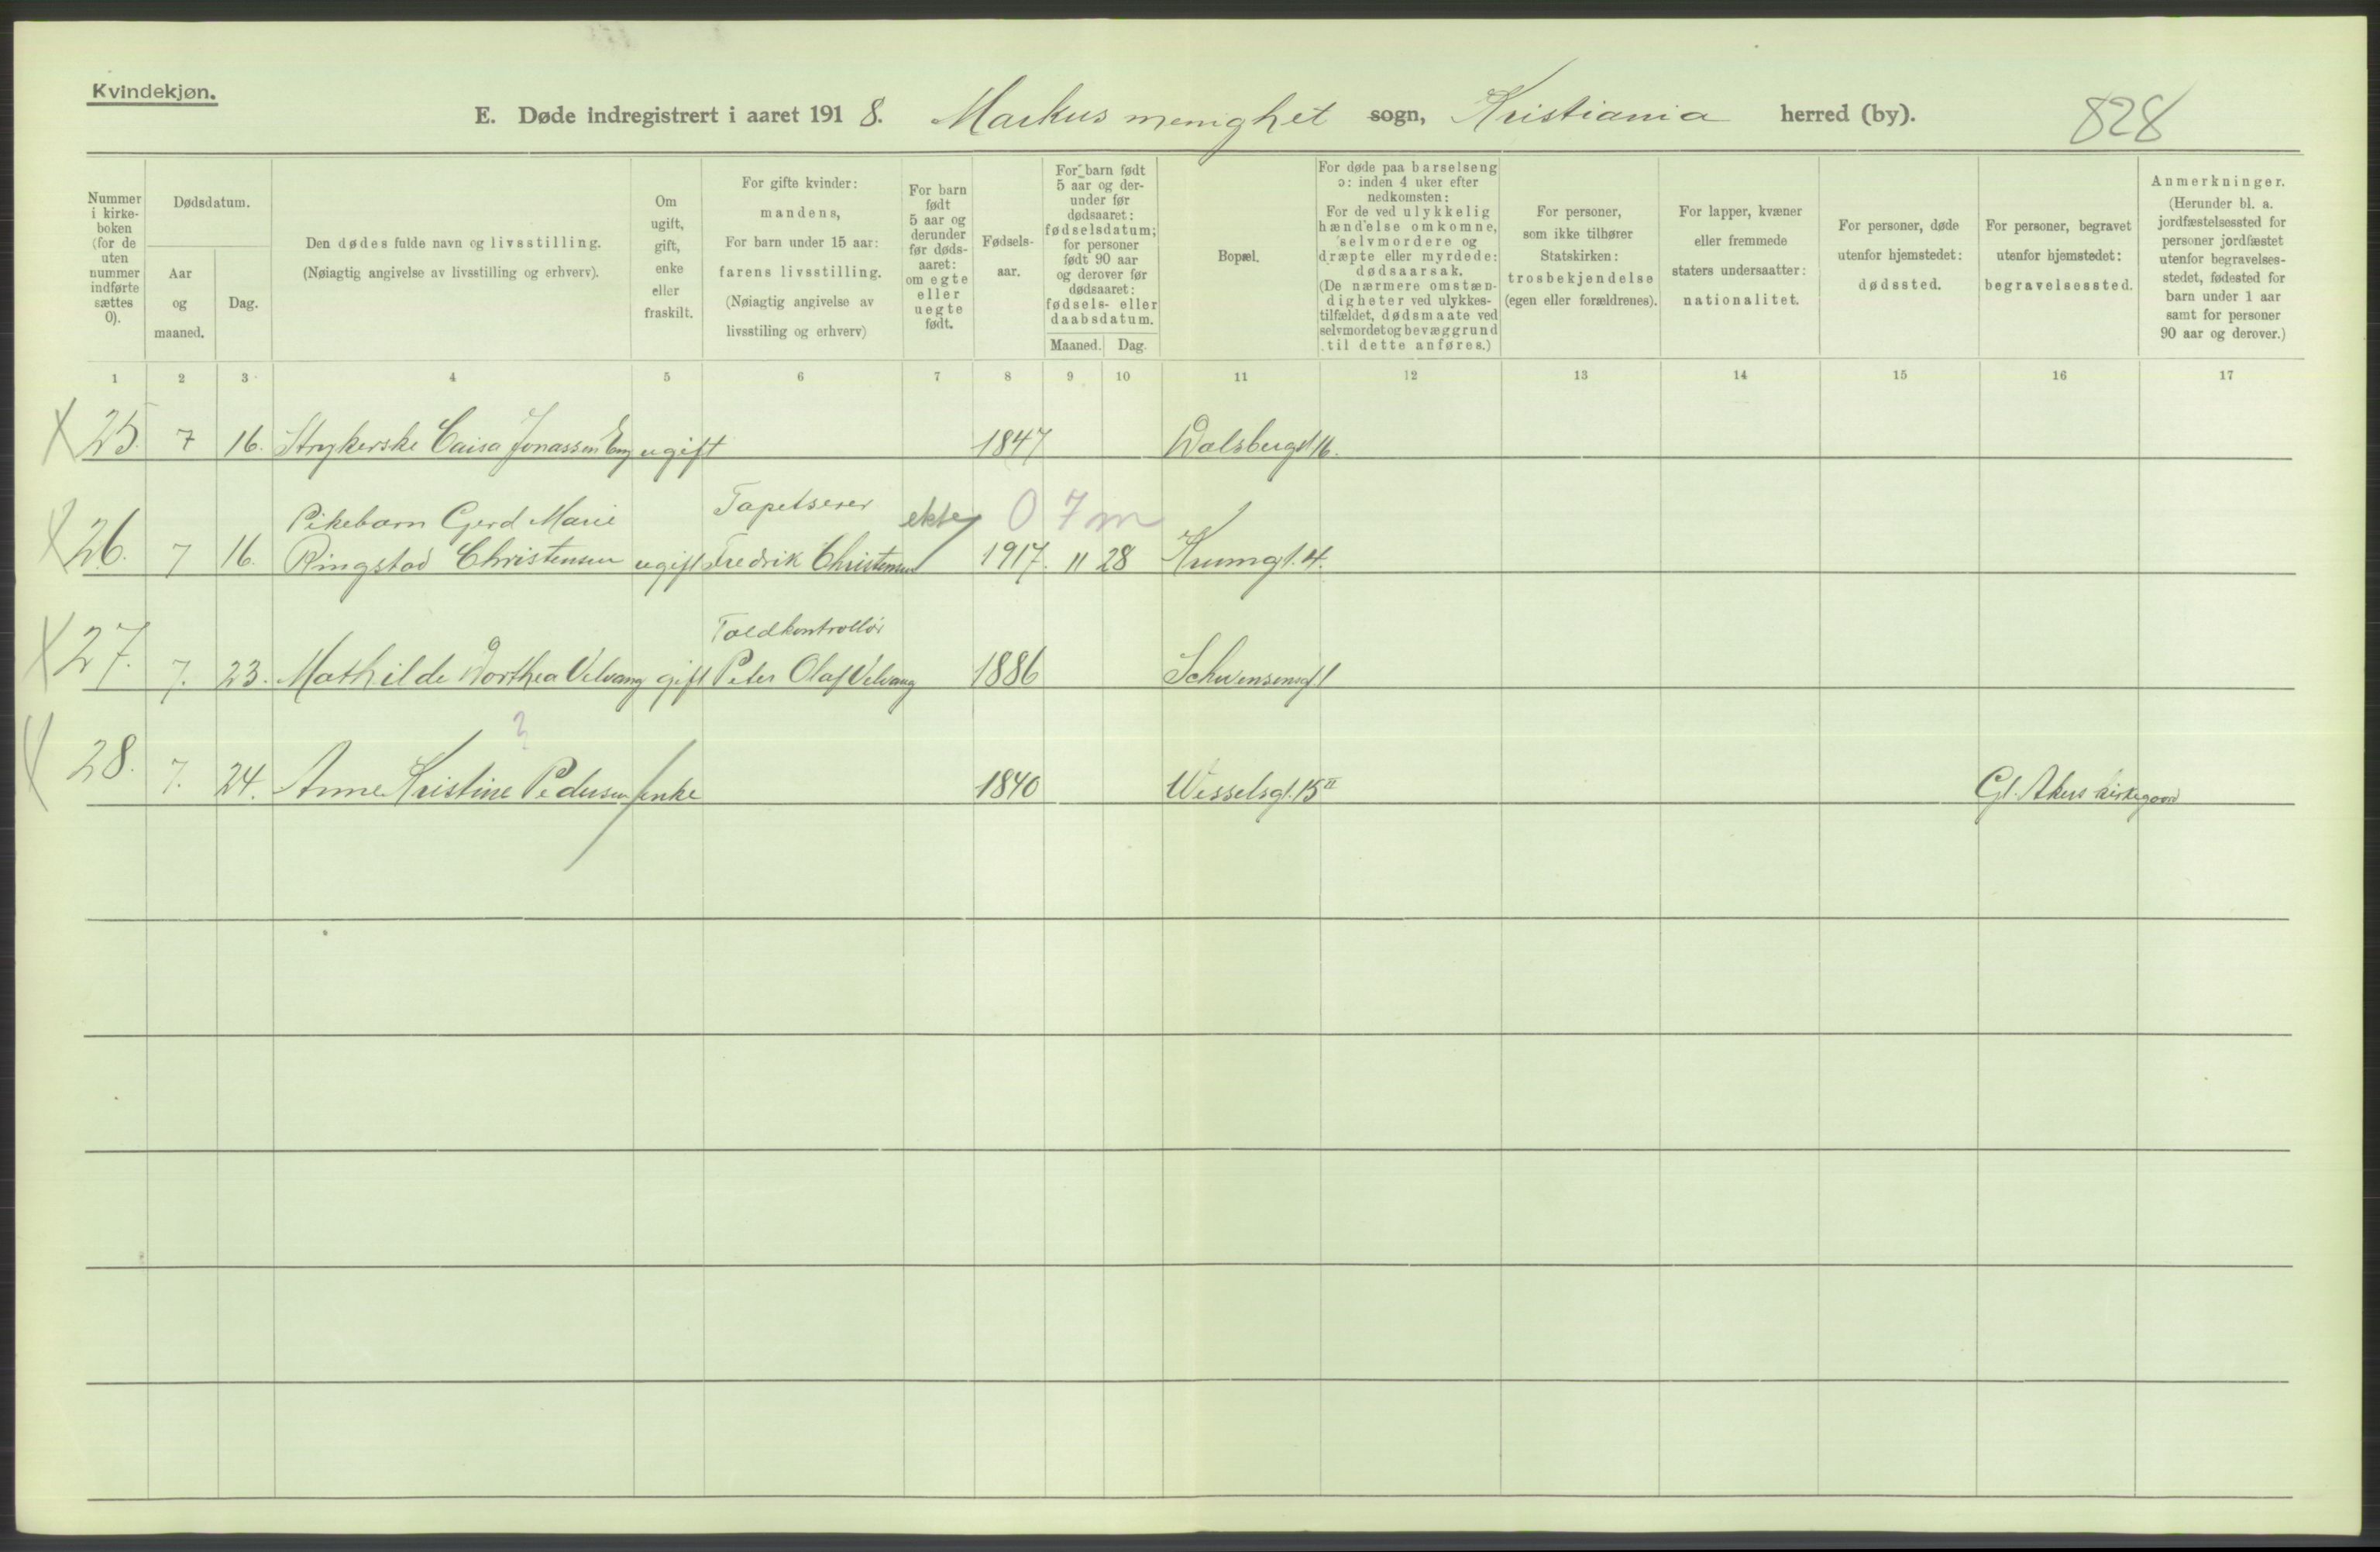 Kvindekjøn.
E. Døde indregistrert i aaret 1918. Markus menighet sogn, Kristiania herred (by).
828
Nummer i kirke-boken (for de uten nummer indførte sættes 0).
Dødsdatum.
Aar og maaned.
Dag.
Den dødes fulde navn og livsstilling.
(Nøiagtig angivelse av livsstilling og erhverv).
Om ugift, gift, enke eller fraskilt.
For gifte kvinder: mandens,
For barn under 15 aar: farens livsstilling.
(Nøiagtig angivelse av livsstiling og erhverv)
For barn født 5 aar og derunder før døds-aaret: om egte eller uegte født.
Fødsels-aar.
For barn født 5 aar og der-under før dødsaaret: fødselsdatum; for personer født 90 aar og derover før dødsaaret: fødsels- eller daabsdatum.
Maaned. Dag.
Bopæl.
For døde paa barselseng ɔ: inden 4 uker efter nedkomsten:
For de ved ulykkelig hændelse omkomne, selvmordere og dræpte eller myrdede: dødsaarsak.
(De nærmere omstæn-digheter ved ulykkes-tilfældet, dødsmaate ved selvmordet og bevæggrund til dette anføres.)
For personer, som ikke tilhører Statskirken: trosbekjendelse (egen eller forældrenes).
For lapper, kvæner eller fremmede staters undersaatter: nationalitet.
For personer, døde utenfor hjemstedet: dødssted.
For personer, begravet utenfor hjemstedet: begravelsessted.
Anmerkninger.
(Herunder bl. a. jordfæstelsessted for personer jordfæstet utenfor begravelses-stedet, fødested for barn under 1 aar samt for personer 90 aar og derover.)
1 2 3 4 5 6 7 8 9 10 11 12 13 14 15 16 17
25. 7 16. Strykerske Caisa Jonassen ugift 1847
Pikebarn Gerd Marie Tapetserer ekte 0 7 m
26. 7 16. Ringstad Christensen ugift Fredrik Christensen 1917. 11 28 Krumgt. 4.
Toldkontrollör
27. 7. 23. Mathilde Dorthea Velvang gift Peter Olaf Velvang 1886 Schwensensgt. 1
?
28. 7. 24. Anne Kristine Pedersen enke 1840 Wesselsgt. 15 II Gl. Akers kirkegaard